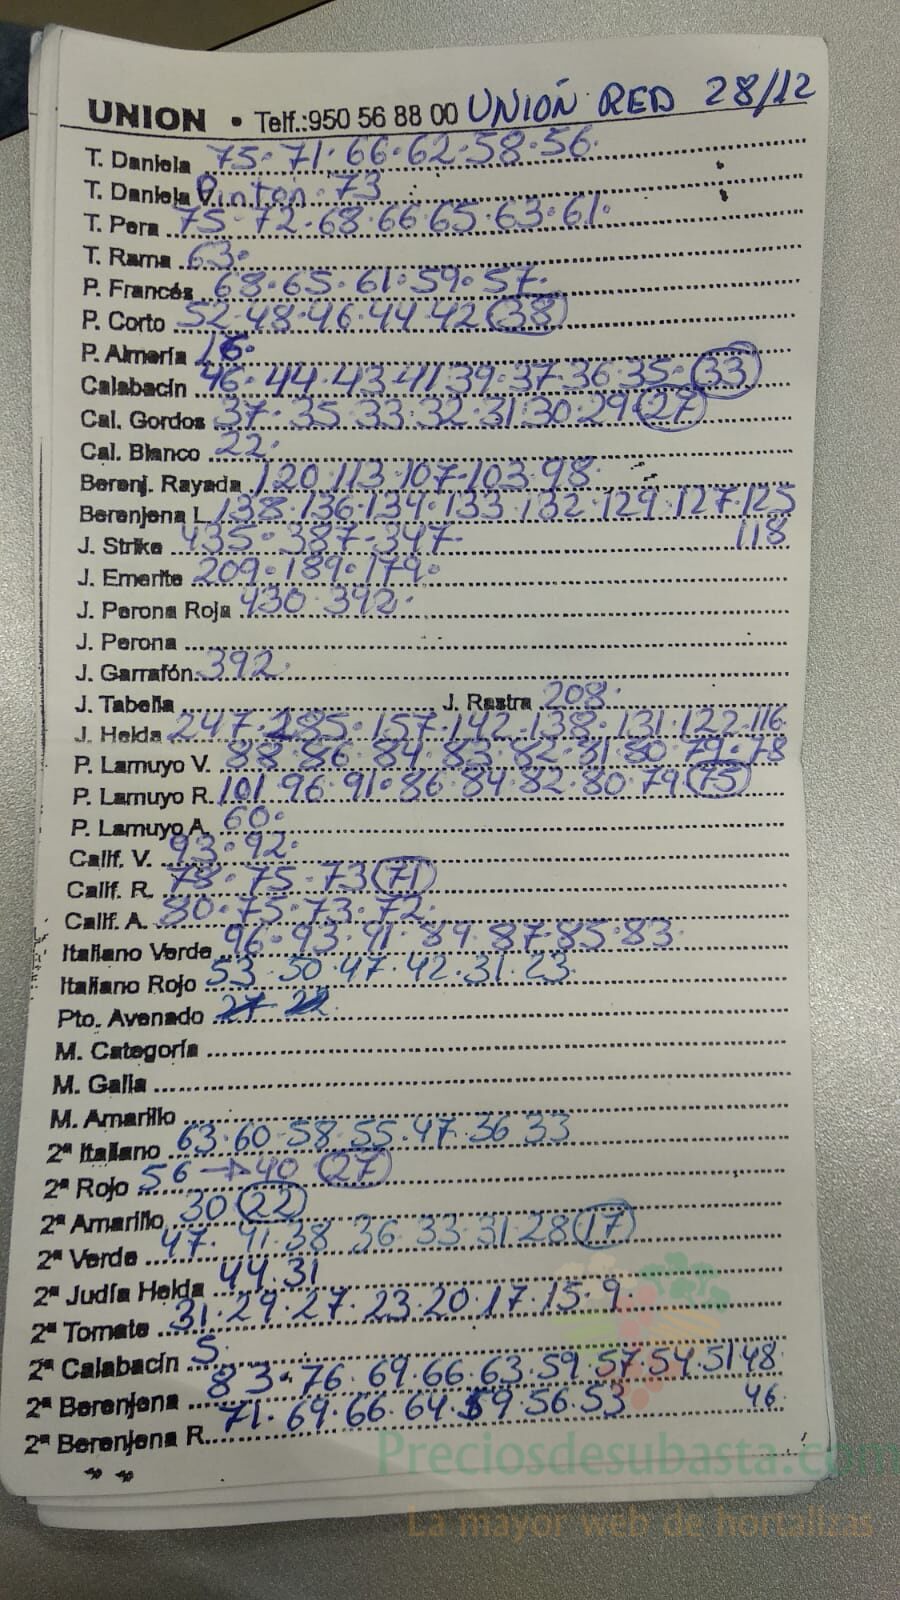 UNION • Telf.:950 56 88 00 UNIÓN RED 28/12
T. Daniela 75·71·66·62·58·56·
T. Daniela V. Pintón·73
T. Pera 75·72·68·66·65·63·61·
T. Rama 63·
P. Francés 68·65·61·59·57·
P. Corto 52·48·46·44·42 (38)
P. Almería 16·
Calabacín 46·44·43·41·39·37·36·35·(33)
Cal. Gordos 37·35·33·32·31·30·29 (27)
Cal. Blanco 22·
Berenj. Rayada 120·113·107·103·98·
Berenjena L 138·136·134·133·132·129·127·125
118
J. Strike 435·387·347·
J. Emerite 209·189·179·
J. Perona Roja 430·392·
J. Perona
J. Garrafón 392·
J. Tabella J. Rastra 208·
J. Helda 247·185·157·142·138·131·122·116
P. Lamuyo V. 88·86·84·83·82·81·80·79·78
P. Lamuyo R. 101·96·91·86·84·82·80·79 (75)
P. Lamuyo A. 60·
Calif. V. 93·92·
Calif. R. 78·75·73 (71)
Calif. A. 80·75·73·72·
Italiano Verde 96·93·91·89·87·85·83·
Italiano Rojo 53·50·47·42·31·23·
Pto. Avenado
M. Categoría
M. Galia
M. Amarillo
2ª Italiano 63·60·58·55·47·36·33
2ª Rojo 56→40 (27)
2ª Amarillo 30 (22)
2ª Verde 47·41·38·36·33·31·28 (17)
2ª Judía Helda 44·31
2ª Tomate 31·29·27·23·20·17·15·9·
2ª Calabacín 5·
2ª Berenjena 83·76·69·66·63·59·57·54·51·48
46·
2ª Berenjena R. 71·69·66·64·59·56·53
Preciosdesubasta.com
La mayor web de hortalizas